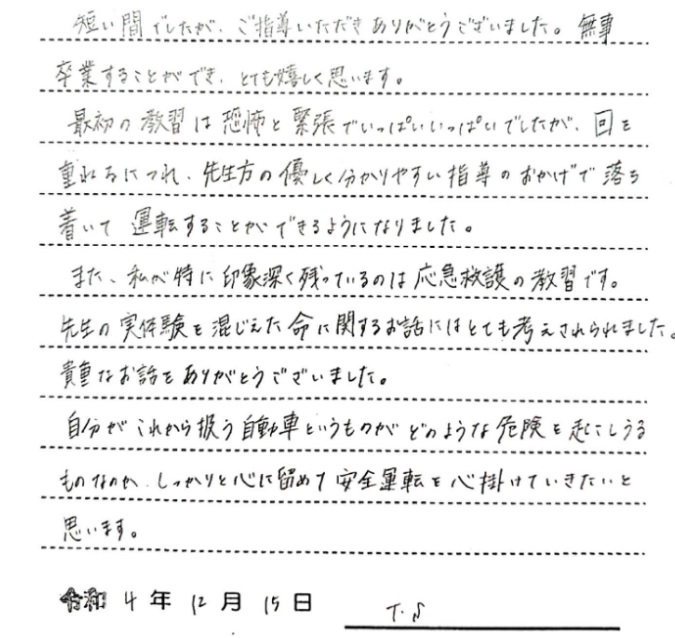 短い間でしたが、ご指導いただきありがとうございました。無事
卒業することができ、とても嬉しく思います。
最初の教習は恐怖と緊張でいっぱいいっぱいでしたが、回を
重ねるにつれ、先生方の優しく分かりやすい指導のおかげで落ち
着いて運転することができるようになりました。
また、私が特に印象深く残っているのは応急救護の教習です。
先生の実体験を混じえた命に関するお話にはとても考えされられました。
貴重なお話をありがとうございました。
自分がこれから扱う自動車というものがどのような危険を起こしうる
ものなのか、しっかりと心に留めて安全運転を心掛けていきたいと
思います。
令和 4 年 12 月 15 日 T.S